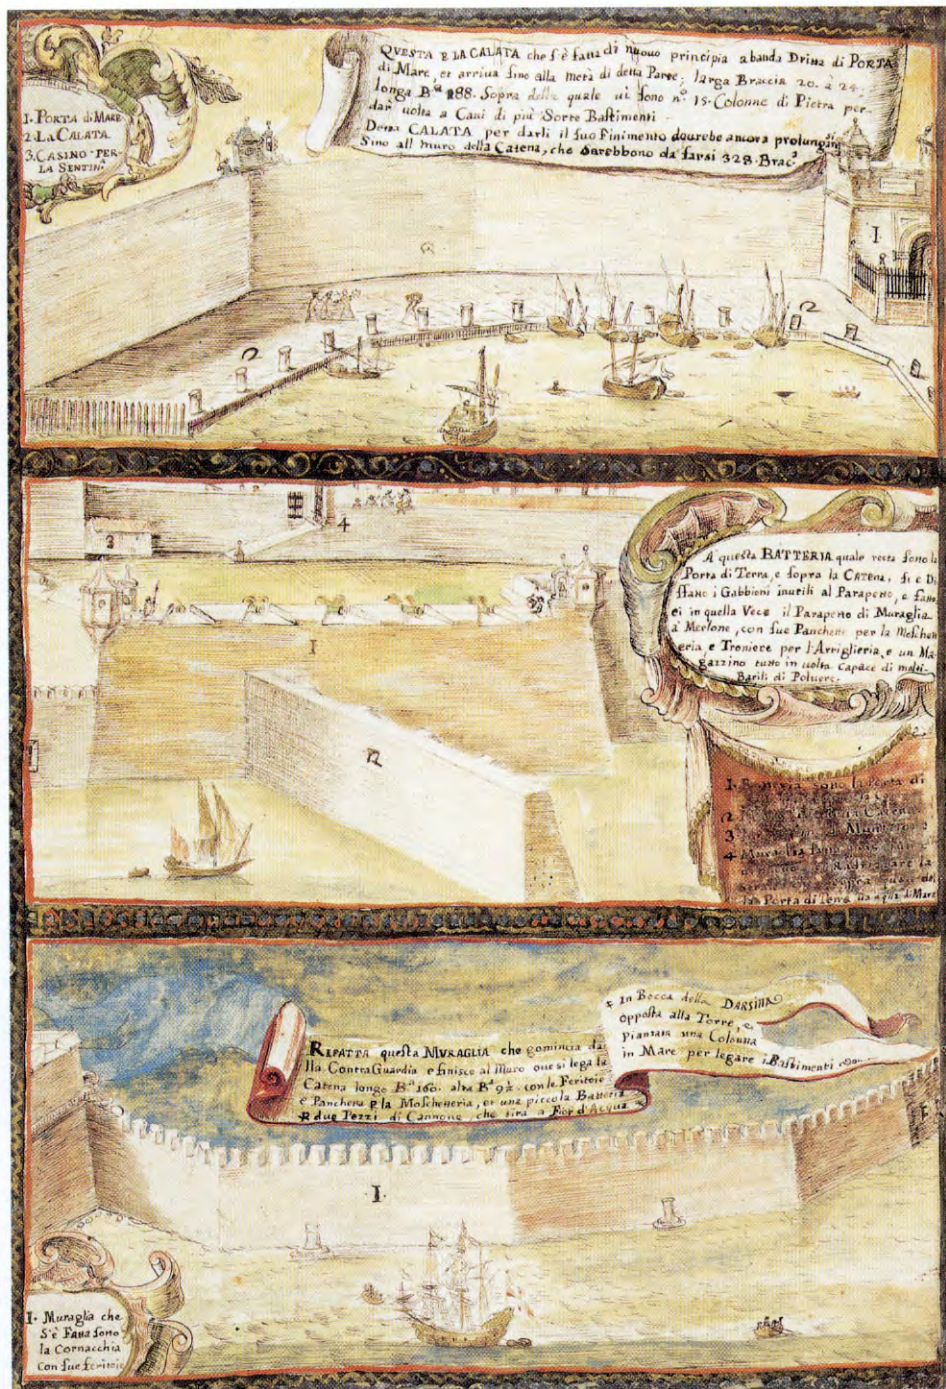 1. PORTA di MARE
2. LA CALATA.
3. CASINO PER
LA SENTIN.ª
QVESTA E LA CALATA che s'è fatta di nuovo principia a banda Dritta di PORTA
di Mare, et arriva sino alla metà di detta Parte; larga Braccia 20. à 24.
longa B.ª 288. Sopra della quale ui sono nº. 15. Colonne di Pietra per
dar uolta a Caui di più Sorte Bastimenti
Detta CALATA per darli il suo Finimento dourebe ancora prolungarsi
Sino all muro della Catena, che sarebbono da farsi 328. Brac.ª
1
2
2
3
4
1
2
A questa BATTERIA quale resta sotto la
Porta di Terra, e sopra la CATENA, si è Di
sfatto i Gabbioni inutili al Parapetto, e fatto
ci in quella Vece il Parapetto di Muraglia
à Merlone, con sue Panchette per la Moschett
eria, e Troniere per l'Arriglieria, e un Ma
gazzino tutto in uolta capace di molti
Barili di Poluere.
1. sotto la Porta di
2 Catena
3
4 Muraglia
la
sopra
Porta di Terra ua a qui di Mare
RIFATTA questa MVRAGLIA che gomincia da
lla ContraGuardia e finisce al Muro oue si lega la
Catena longo B.ª 160. alta B.ª 9½. con le Feritoie
e Panchette p la Moschetteria, et una piccola Batteria
P due Pezzi di Cannone che tira a Fior d'Acqua
e In Bocca della DARSINA
opposta alla Torre, e
Piantata una Colonna
in Mare per legare i Bastimenti
.I.
I. Muraglia che
S'è Fatta sotto
la Cornacchia
Con sue feritoie